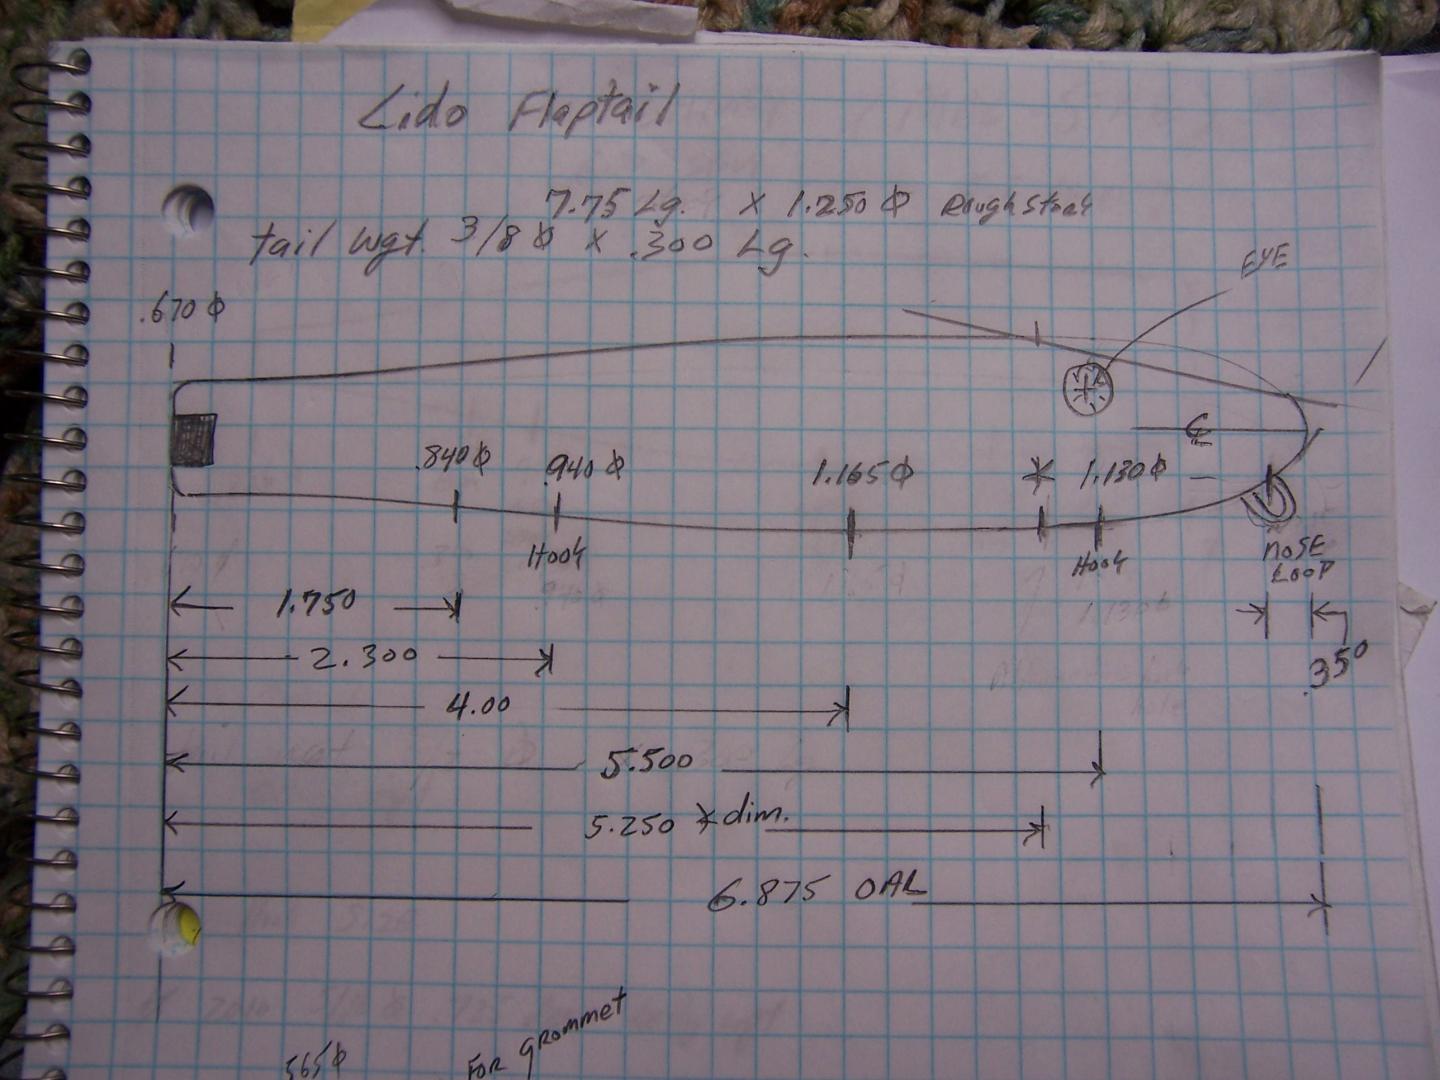 Lido Flaptail
7.75 Lg. X 1.250 ϕ Rough Stock
tail wgt. 3/8 ϕ X .300 Lg.
EYE
.670 ϕ
℄
.840 ϕ .940 ϕ 1.165 ϕ * 1.130 ϕ
Hook Hook NOSE
LOOP
1.750
2.300
.350
4.00
5.500
5.250 * dim.
6.875 OAL
FOR grommet
.565 ϕ